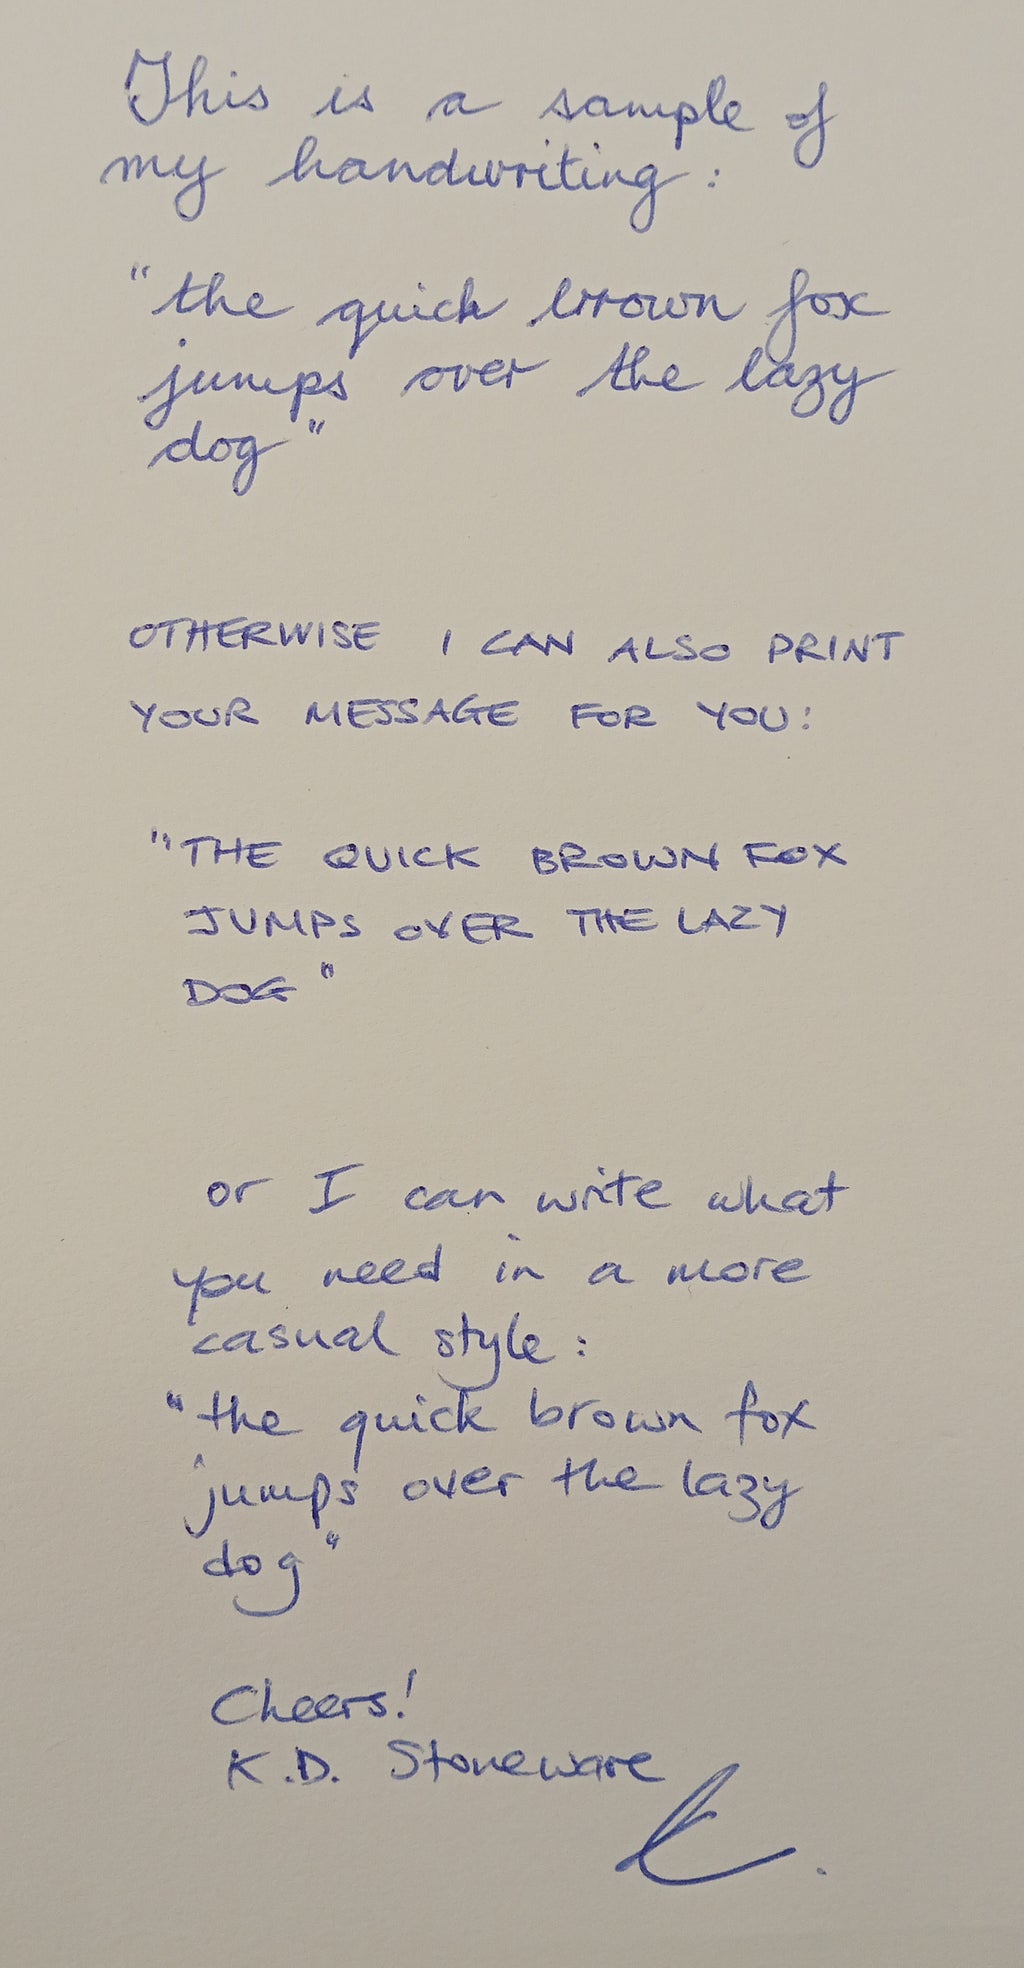 This is a sample of
my handwriting:
"the quick brown fox
jumps over the lazy
dog"
OTHERWISE I CAN ALSO PRINT
YOUR MESSAGE FOR YOU:
"THE QUICK BROWN FOX
JUMPS OVER THE LAZY
DOG"
or I can write what
you need in a more
casual style:
"the quick brown fox
jumps over the lazy
dog"
Cheers!
K.D. Stoneware
K.